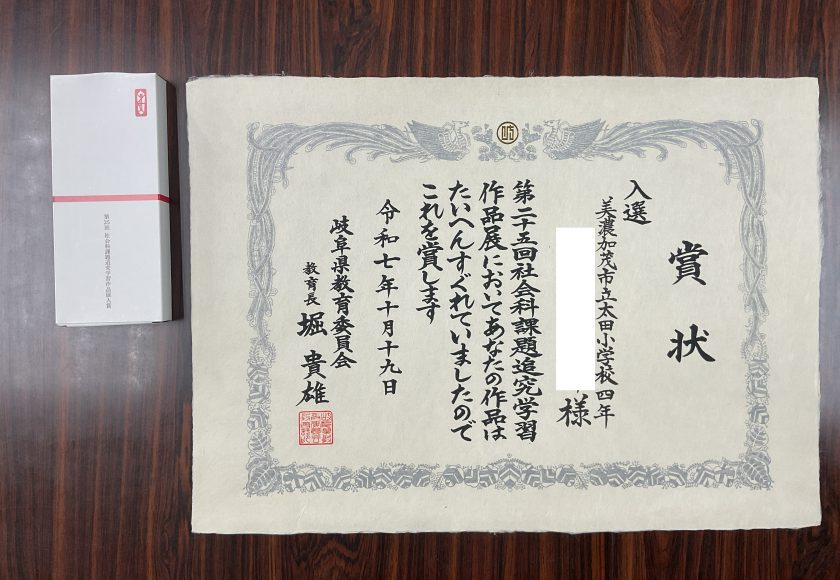 賞状
入選
美濃加茂市立太田小学校四年
様
第二十五回社会科課題追究学習
作品展においてあなたの作品は
たいへんすぐれていましたので
これを賞します
令和七年十月十九日
岐阜県教育委員会
教育長 堀貴雄
第25回 社会科課題追究学習作品展入賞